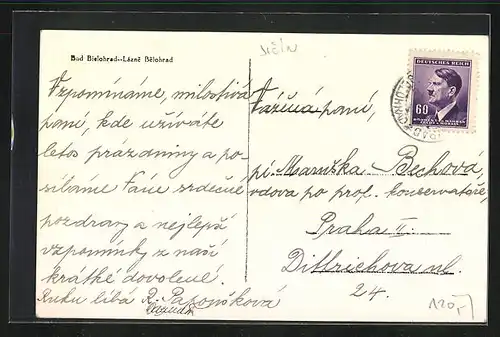 Jičín
Bad Bielohrad--Lázně Bělohrad
Vzpomínáme, milostivá
paní, kde užíváte
letos prázdniny a po-
síláme Vám srdečné
pozdravy a nejlepší
vzpomínky z naší
krátké dovolené.
Ruku líbá R.
DEUTSCHES REICH
60
BÖHMEN UND MÄHREN
Vážená paní,
pí Maruška Bechová,
vdova po prof. konservatoře,
Praha II.
Dittrichova ul.
24.
120,-